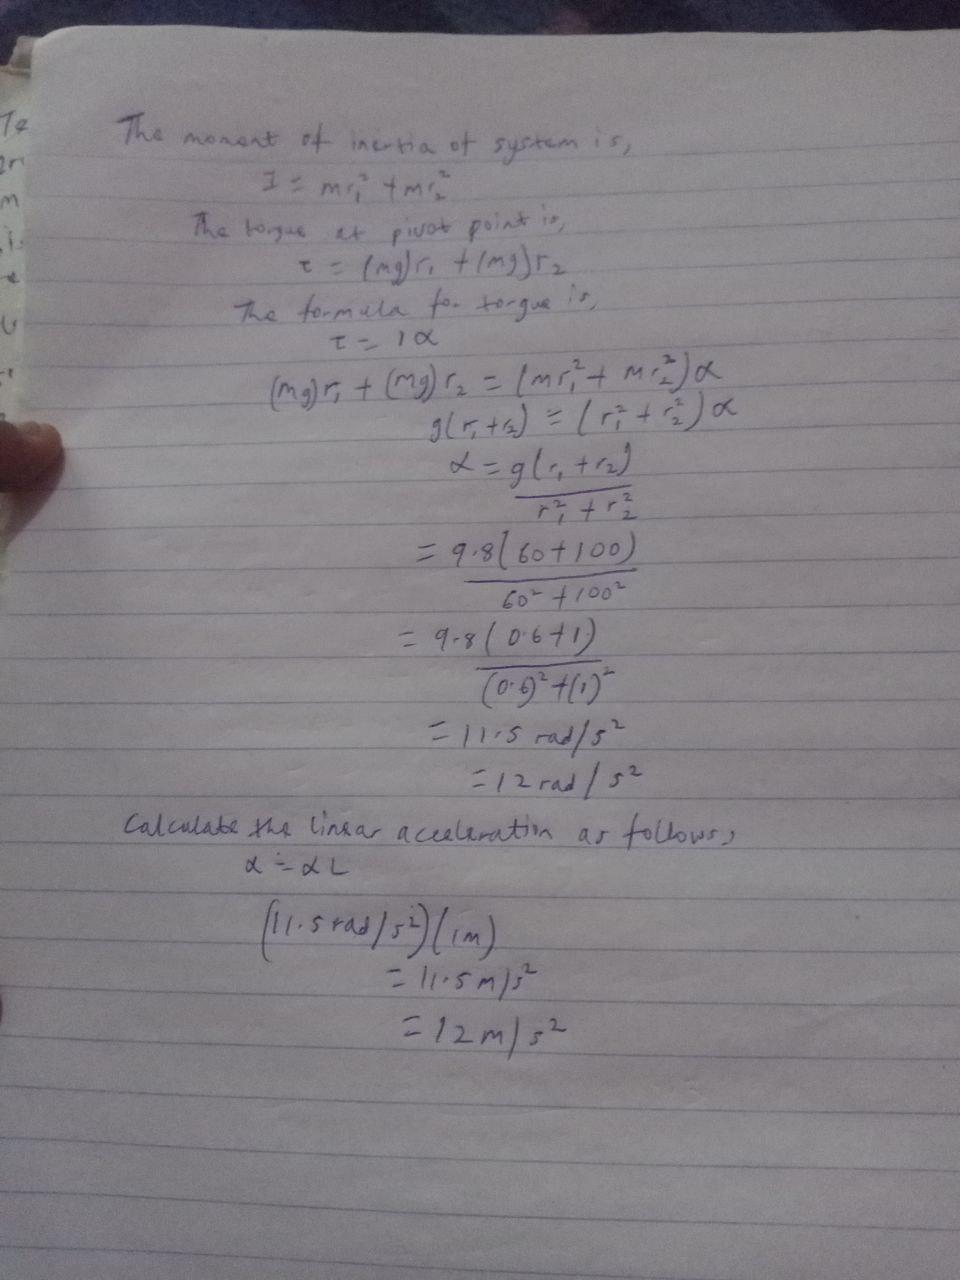 The moment of inertia of system is,
I = mr₁² + mr₂²
The torque at pivot point is,
τ = (mg)r₁ + (mg)r₂
The formula for torque is,
τ = Iα
(mg)r₁ + (mg)r₂ = (mr₁² + mr₂²)α
g(r₁ + r₂) = (r₁² + r₂²)α
α = g(r₁ + r₂)
r₁² + r₂²
= 9.8(60 + 100)
60² + 100²
= 9.8(0.6 + 1)
(0.6)² + (1)²
= 11.5 rad/s²
= 12 rad/s²
Calculate the linear acceleration as follows,
α = αL
(11.5 rad/s²)(1m)
= 11.5 m/s²
= 12 m/s²